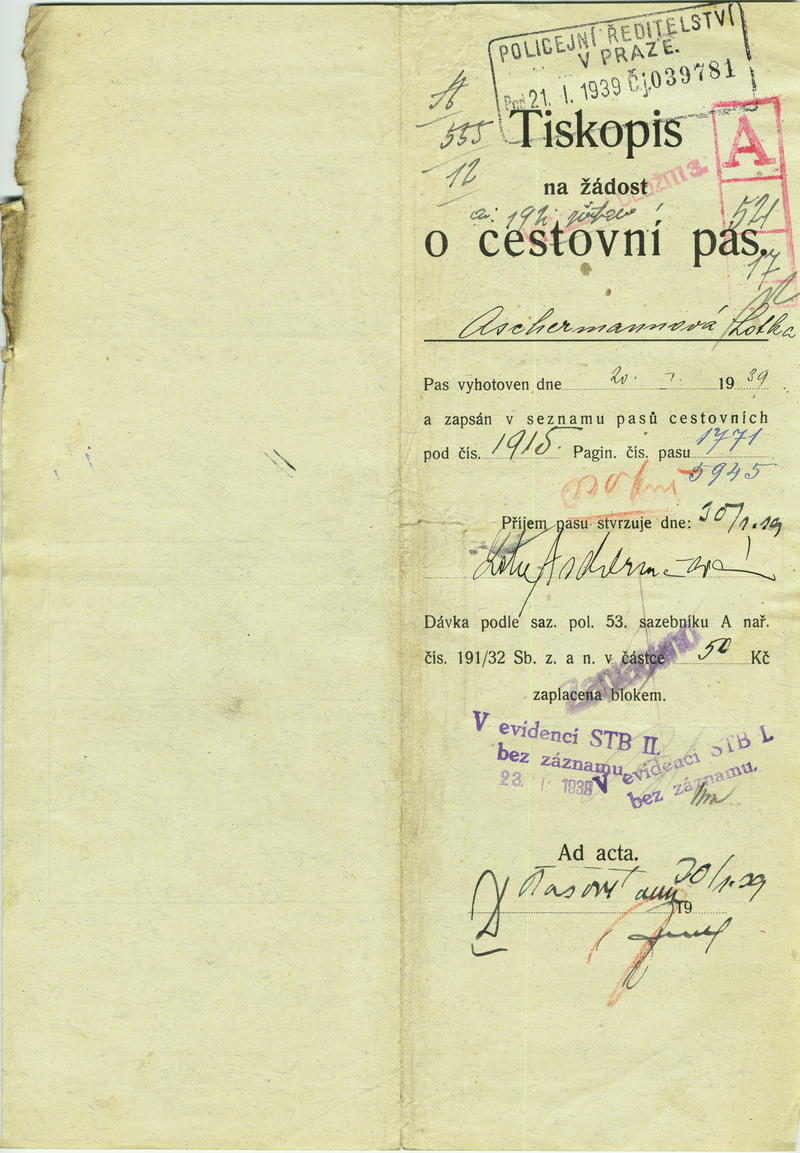 POLICEJNÍ ŘEDITELSTVÍ
V PRAZE.
21. I. 1939 Čj.039781
A
555
12
Tiskopis
na žádost
o cestovní pas.
521
17
Aschermannová Lotka
Pas vyhotoven dne 20. I. 1939
a zapsán v seznamu pasů cestovních
pod čís. 1915. Pagin. čís. pasu 1771
5945
osobní
Příjem pasu stvrzuje dne: 30/1.39
Dávka podle saz. pol. 53. sazebníku A nař.
čís. 191/32 Sb. z. a n. v částce 50 Kč
Zaplaceno
zaplacena blokem.
V evidenci STB II.
bez záznamu
23. I. 1939
V evidenci STB I.
bez záznamu.
Ad acta.
30/1.39
19